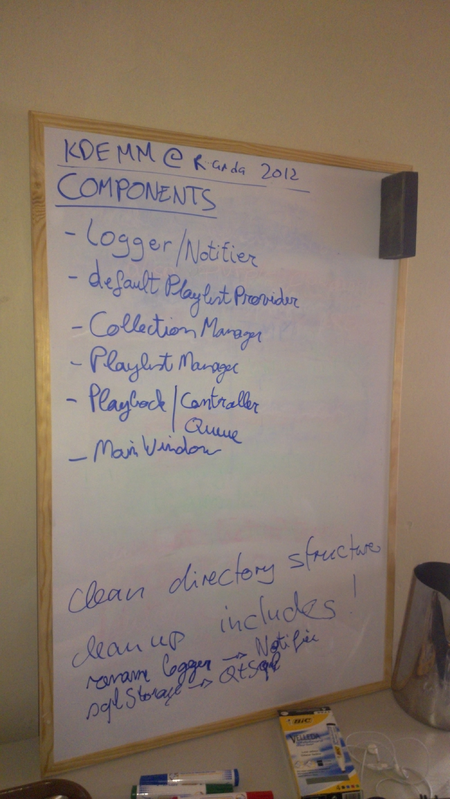 KDE MM @ Randa 2012
COMPONENTS
- Logger/Notifier
- default Playlist Provider
- Collection Manager
- Playlist Manager
- Playback / Controller
Queue
- Main Window
clean directory structure
clean up includes!
rename logger → Notifier
sqlStorage → QtSql
BIC
VELLEDA